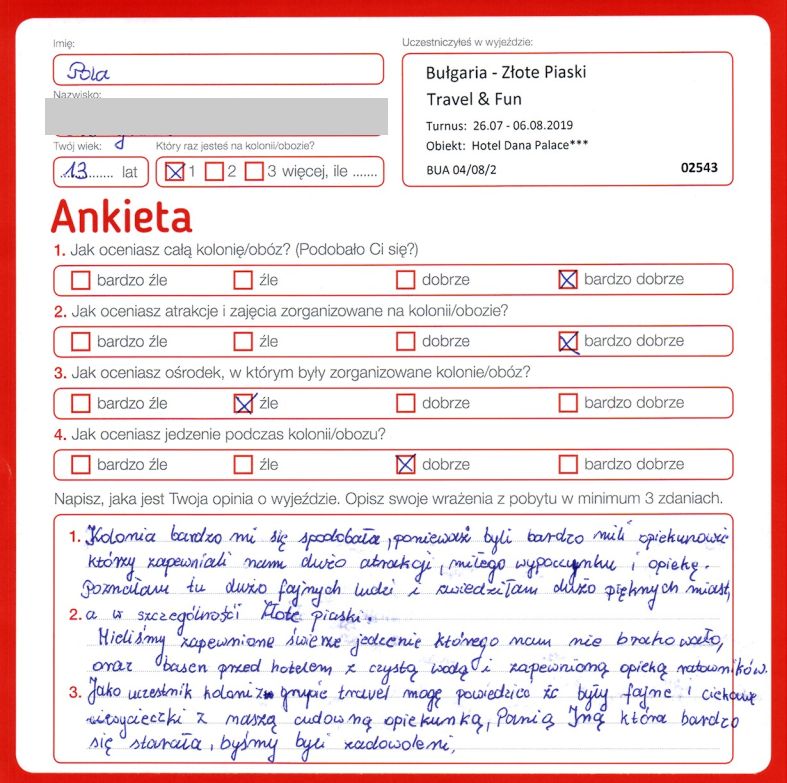 Imię:
Pola
Nazwisko:
Twój wiek:
Który raz jesteś na kolonii/obozie?
13 lat
1 2 3 więcej, ile .......
Uczestniczyłeś w wyjeździe:
Bułgaria - Złote Piaski
Travel & Fun
Turnus: 26.07 - 06.08.2019
Obiekt: Hotel Dana Palace***
BUA 04/08/2
02543
Ankieta
1. Jak oceniasz całą kolonię/obóz? (Podobało Ci się?)
bardzo źle źle dobrze bardzo dobrze
2. Jak oceniasz atrakcje i zajęcia zorganizowane na kolonii/obozie?
bardzo źle źle dobrze bardzo dobrze
3. Jak oceniasz ośrodek, w którym były zorganizowane kolonie/obóz?
bardzo źle źle dobrze bardzo dobrze
4. Jak oceniasz jedzenie podczas kolonii/obozu?
bardzo źle źle dobrze bardzo dobrze
Napisz, jaka jest Twoja opinia o wyjeździe. Opisz swoje wrażenia z pobytu w minimum 3 zdaniach.
1. Kolonia bardzo mi się spodobała, ponieważ byli bardzo mili opiekunowie
którzy zapewniali nam dużo atrakcji, miłego wypoczynku i opiekę.
Poznałam tu dużo fajnych ludzi i zwiedziłam dużo pięknych miast,
2. a w szczególności Złote piaski.
Mieliśmy zapewnione świeże jedzenie którego nam nie brakowało,
oraz basen przed hotelem z czystą wodą i zapewnioną opieką ratowników.
3. Jako uczestnik koloni z grupie travel mogę powiedzieć że były fajne i ciekawe
wycieczki z naszą cudowną opiekunką, Panią Iną która bardzo
się starała, byśmy byli zadowoleni,